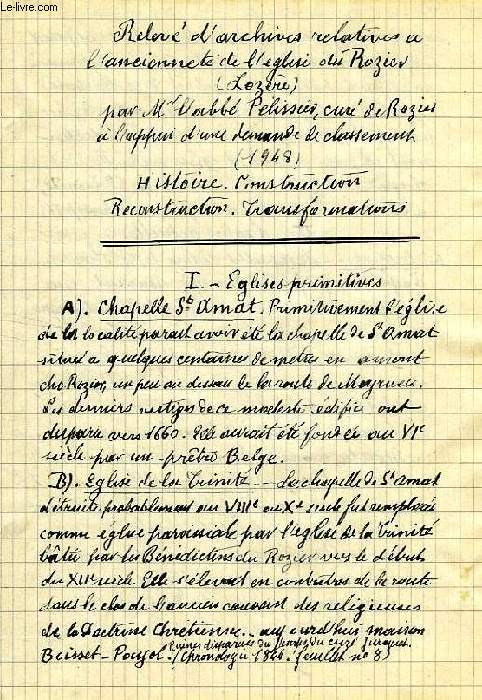 Le-livre.com
Relevé d'archives relatives a
l'ancienneté de l'église du Rozier
(Lozère)
par Mr l'abbé Pélissier, curé de Rozier
à l'appui d'une demande de classement
(1948)
Histoire. Construction
Reconstruction. Transformations
I. - Eglises primitives
A). Chapelle St Amat. Primitivement l'église
de la localité parait avoir été la chapelle de St Amat
située a quelques centaines de metres en amont
du Rozier, un peu au dessous de la route de Meyrueis.
Les derniers vestiges de ce modeste édifice ont
disparu vers 1660. Elle aurait été fondée au VIe
siècle par un prêtre Belge.
B). Eglise de la Trinité - La chapelle de St Amat
détruite probablement au VIIIe ou Xe siècle fut remplacée
comme église paroissiale par l'église de la Trinité
bâtie par les Bénédictins du Rozier vers le début
du XIIe siècle. Elle s'élevait en contrebas de la route
dans le clos de l'ancien couvent des religieuses
de la Doctrine Chrétienne.. aujourd'hui maison
Ruines disparues du temps du curé
Beisset-Poujol. (Chronologie 1840. feuillet no 8)